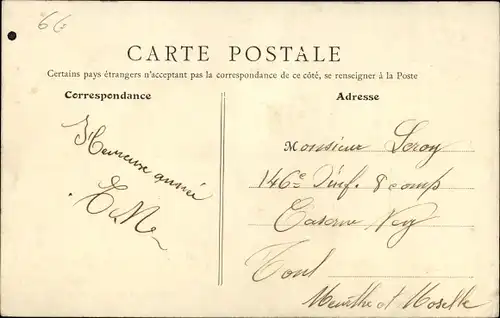 66
CARTE POSTALE
Certains pays étrangers n'acceptant pas la correspondance de ce côté, se renseigner à la Poste
Correspondance
Heureuse année
Adresse
Monsieur Leroy
146e Inf. 8 comp
Caserne Ney
Toul
Meurthe et Moselle